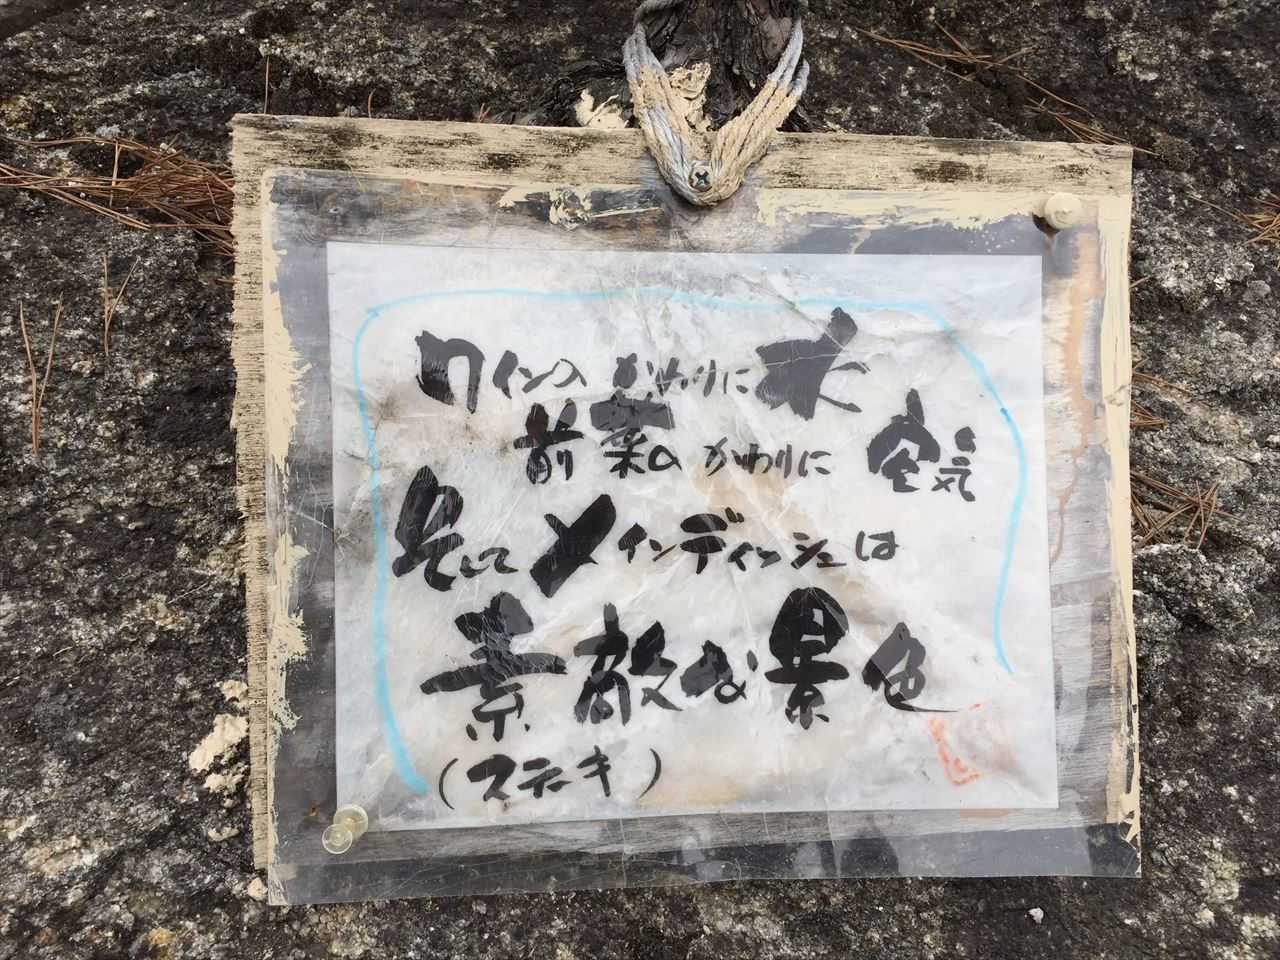 ワインの かわりに 水
前菜の かわりに 空気
そして メインディッシュは
素敵な景色
(ステーキ)